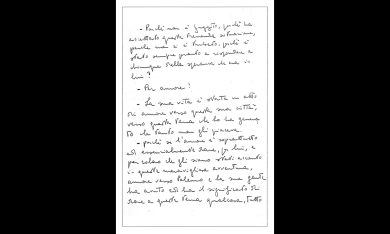 - Perché non è fuggito, perché ha
accettato questa tremenda situazione,
perché mai si è turbato, perché è
stato sempre pronto a rispondere a
chiunque della speranza che era in
lui?
- Per amore!
- La sua vita è stata un atto
di amore verso questa sua città,
verso questa terra che lo ha genera
to che tanto non gli piaceva.
- perché se l'amore è soprattutto
ed essenzialmente dare, per lui, e
per coloro che gli siamo stati accanto
in questa meravigliosa avventura,
amore verso Palermo e la sua gente
ha avuto ed ha il significato di
dare a questa terra qualcosa, tutto